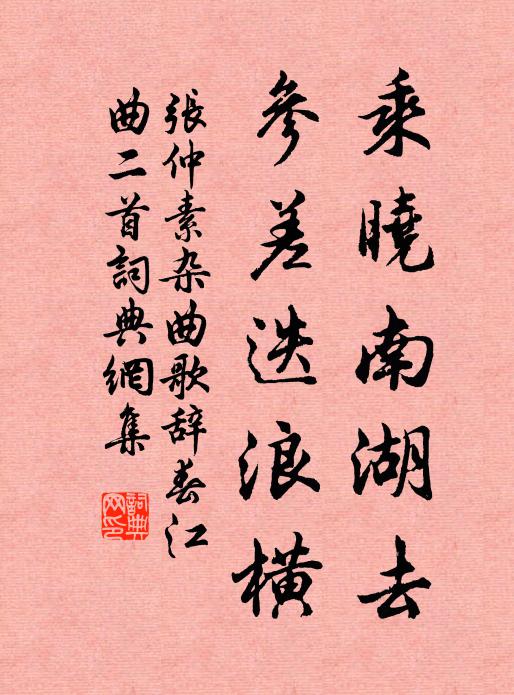 乘曉南湖去
參差迭浪橫
張仲素杂曲歌辞春江
曲二首詞典網集
詞典網印